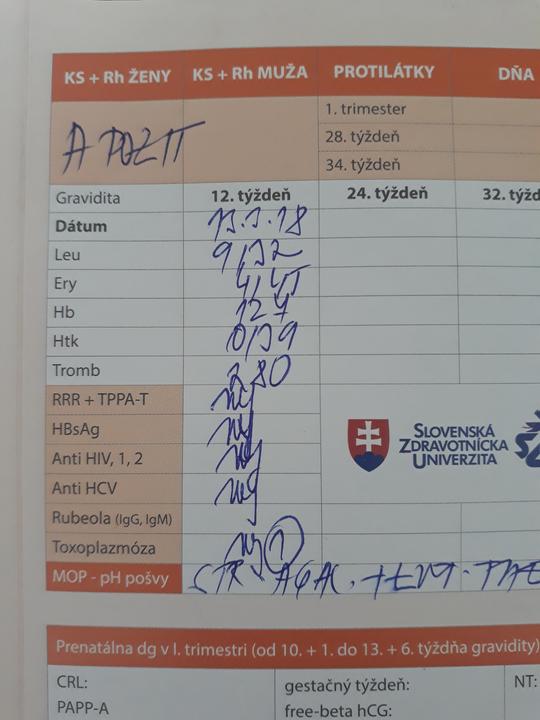 KS + Rh ŽENY KS + Rh MUŽA PROTILÁTKY DŇA
A POZIT
1. trimester
28. týždeň
34. týždeň
Gravidita 12. týždeň 24. týždeň 32. týžd
Dátum 13.3.18
Leu 9,32
Ery 4,45
Hb 127
Htk 0,39
Tromb 280
RRR + TPPA-T neg
HBsAg neg
Anti HIV, 1, 2 neg
Anti HCV neg
Rubeola (IgG, IgM)
Toxoplazmóza neg
MOP - pH pošvy STR. AGAL.
SLOVENSKÁ
ZDRAVOTNÍCKA
UNIVERZITA
Prenatálna dg v I. trimestri (od 10. + 1. do 13. + 6. týždňa gravidity)
CRL: gestačný týždeň: NT:
PAPP-A free-beta hCG: